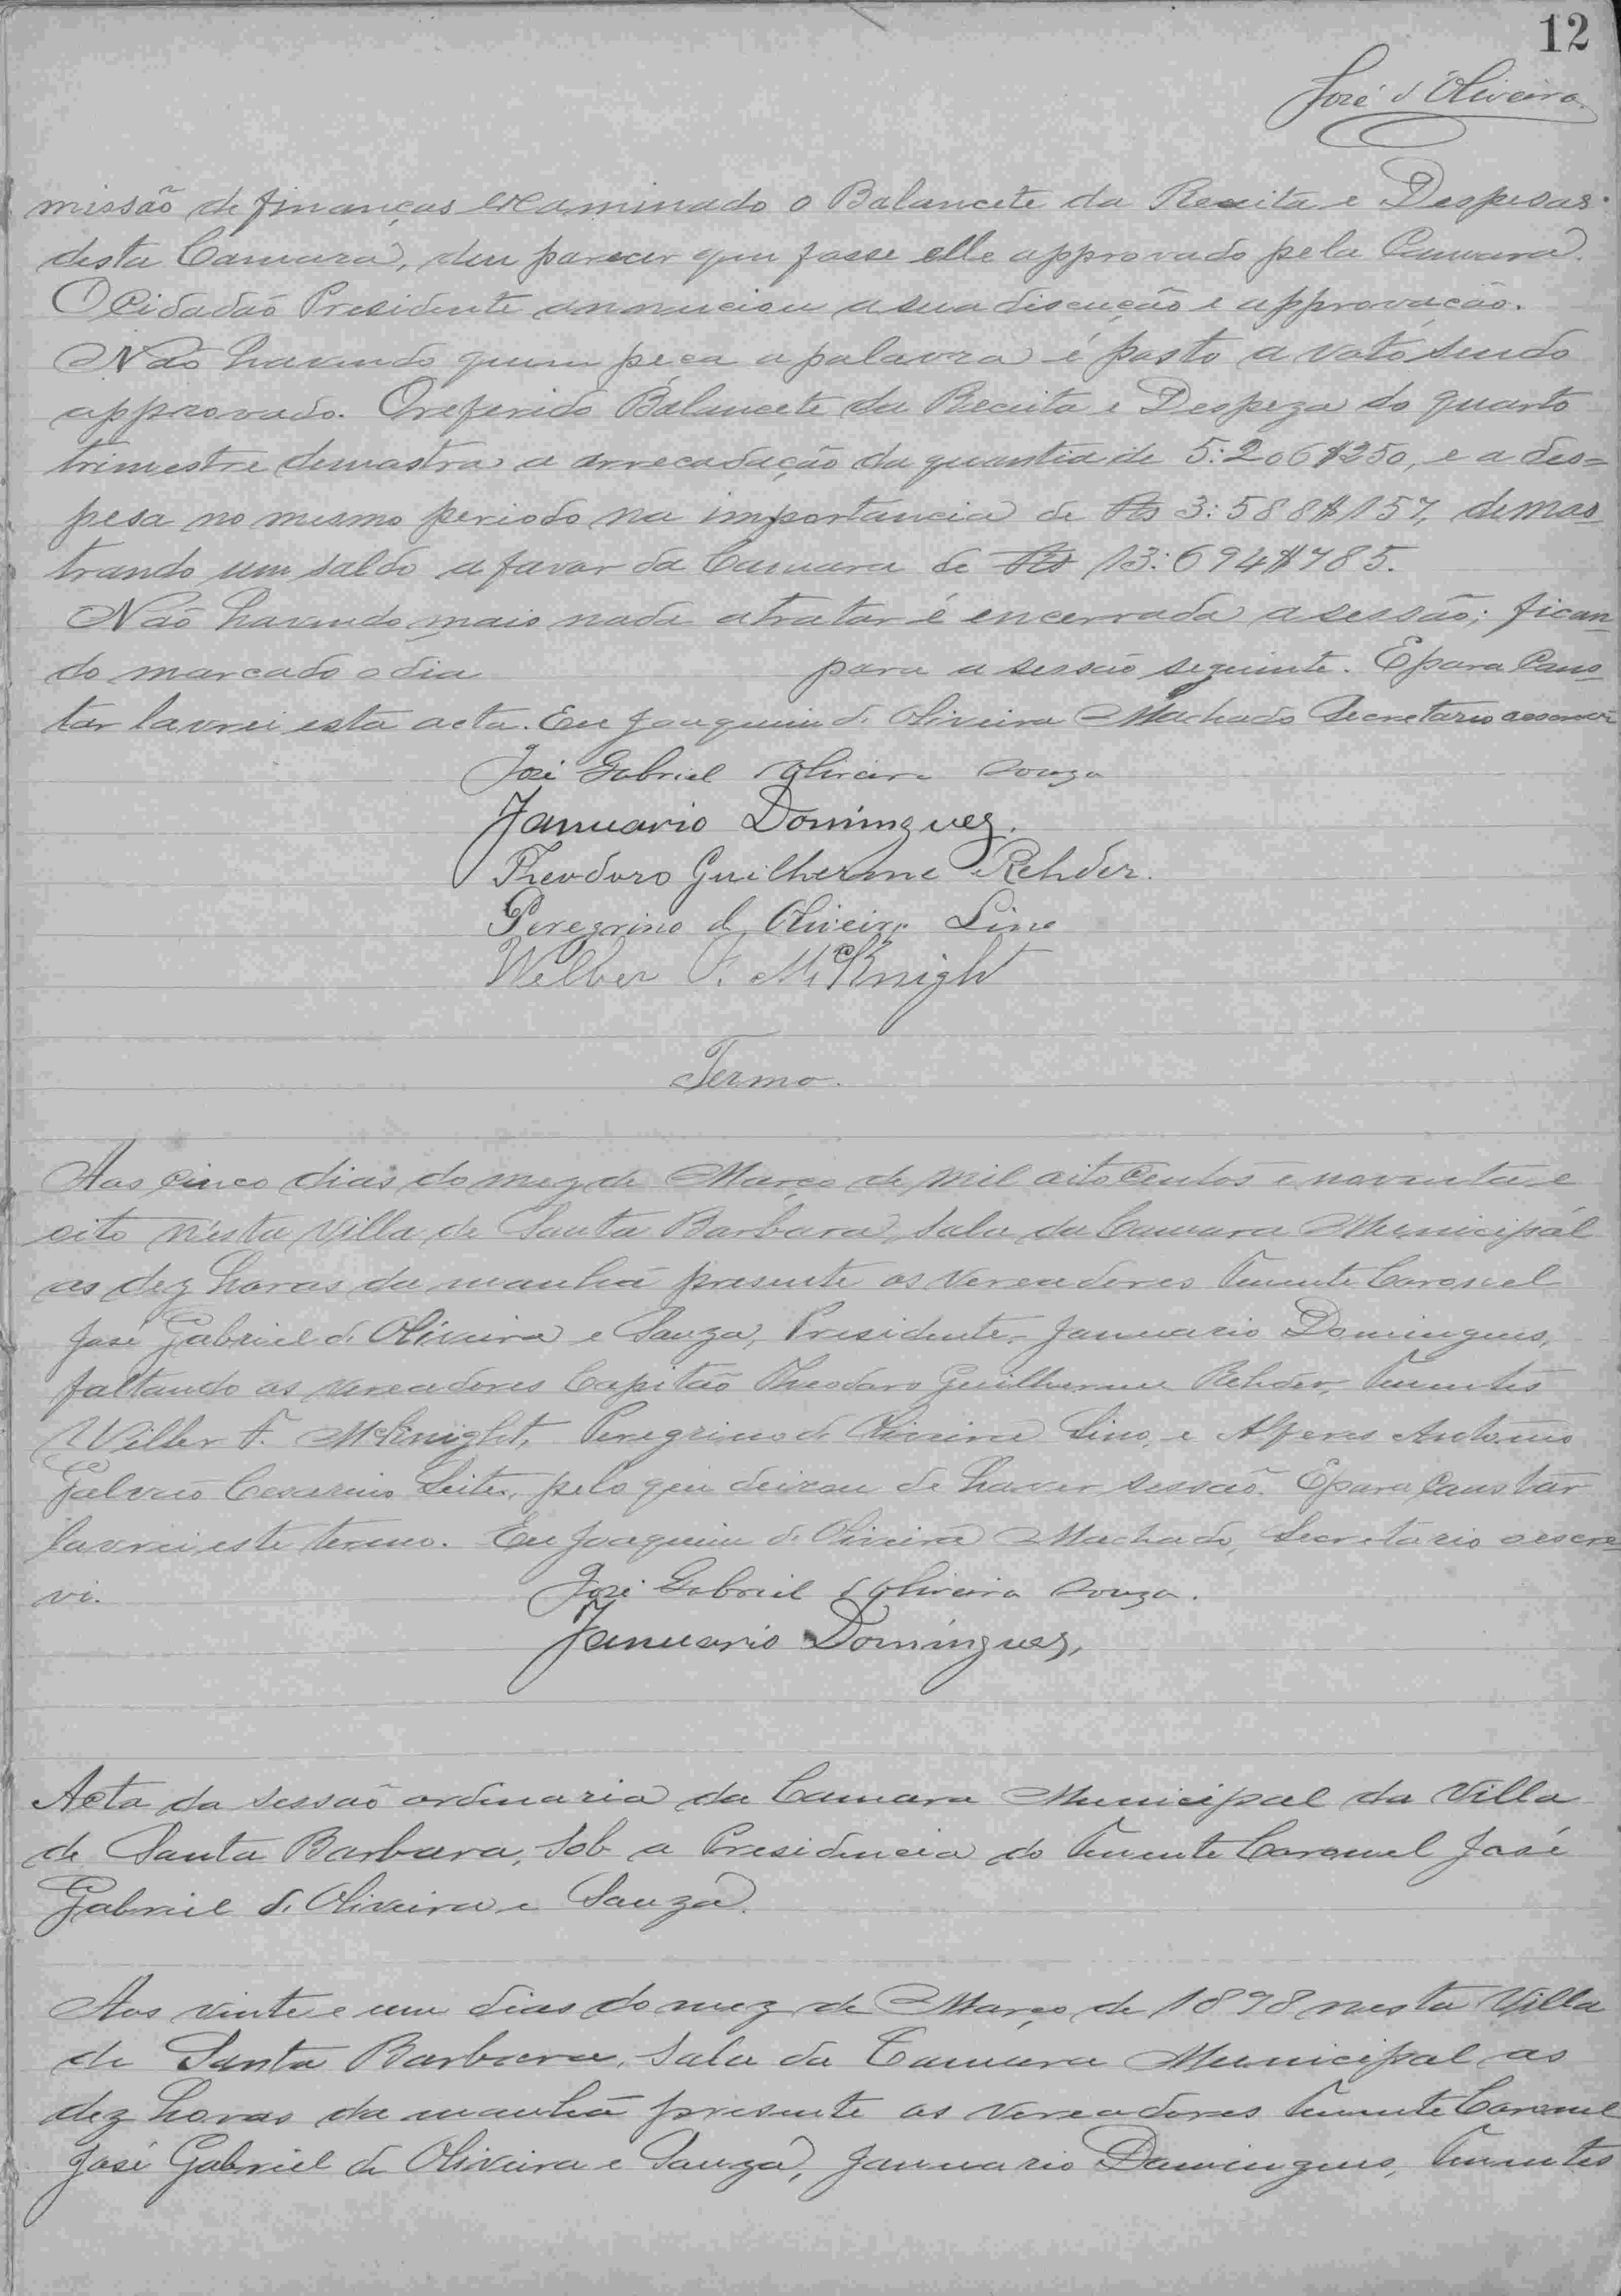 12
José d'Oliveira
missão de finanças examinado o Balancete da Receita e Despesas
desta Camara, deu parecer que fosse elle approvado pela Camara.
O Cidadão Presidente annunciou a sua discução e approvação.
Não havendo quem peça a palavra é posto a voto sendo
approvado. O referido Balancete da Receita e Despeza do quarto
trimestre demostra a arrecadação da quantia de 5:206$250, e a des=
pesa no mesmo periodo na importancia de Rs 3:588$157, demos
trando um saldo a favor da Camara de Rs 13:694$785.
Não havendo mais nada a tratar é encerrada a sessão; fican
do marcado o dia para a sessão seguinte. E para Cons
tar lavrei esta acta. Eu Joaquim d. Oliveira Machado Secretario
José Gabriel d'Oliveira Souza
Januario Domingues.
Theodoro Guilherme Rehder.
Peregrino d. Oliveira Lino
Welber F. McKnight
Termo.
Aos cinco dias do mez de Março de mil oito centos e noventa e
oito n'esta Villa de Santa Barbara, Sala da Camara Municipal
as dez horas da manhã presente os Vereadores Tenente Coronel
José Gabriel d. Oliveira e Souza, Presidente, Januario Domingues,
faltando os vereadores Capitão Theodoro Guilherme Rehder, Tenentes
Wilber F. McKnight, Peregrino d. Oliveira Lino, e Alferes Antonio
Galvão Cesarino Leite, pelo que deixou de haver sessão. E para Constar
lavrei este termo. Eu Joaquim d. Oliveira Machado, Secretario o escre
vi.
José Gabriel d'Oliveira Souza.
Januario Domingues,
Acta da sessão ordinaria da Camara Municipal da Villa
de Santa Barbara, Sob a Presidencia do Tenente Coronel José
Gabriel d. Oliveira e Souza.
Aos vinte e um dias do mez de Março de 1898 nesta Villa
de Santa Barbara, Sala da Camara Municipal as
dez horas da manhã presente os Vereadores Tenente Coronel
José Gabriel de Oliveira e Souza, Januario Domingues, Tenentes